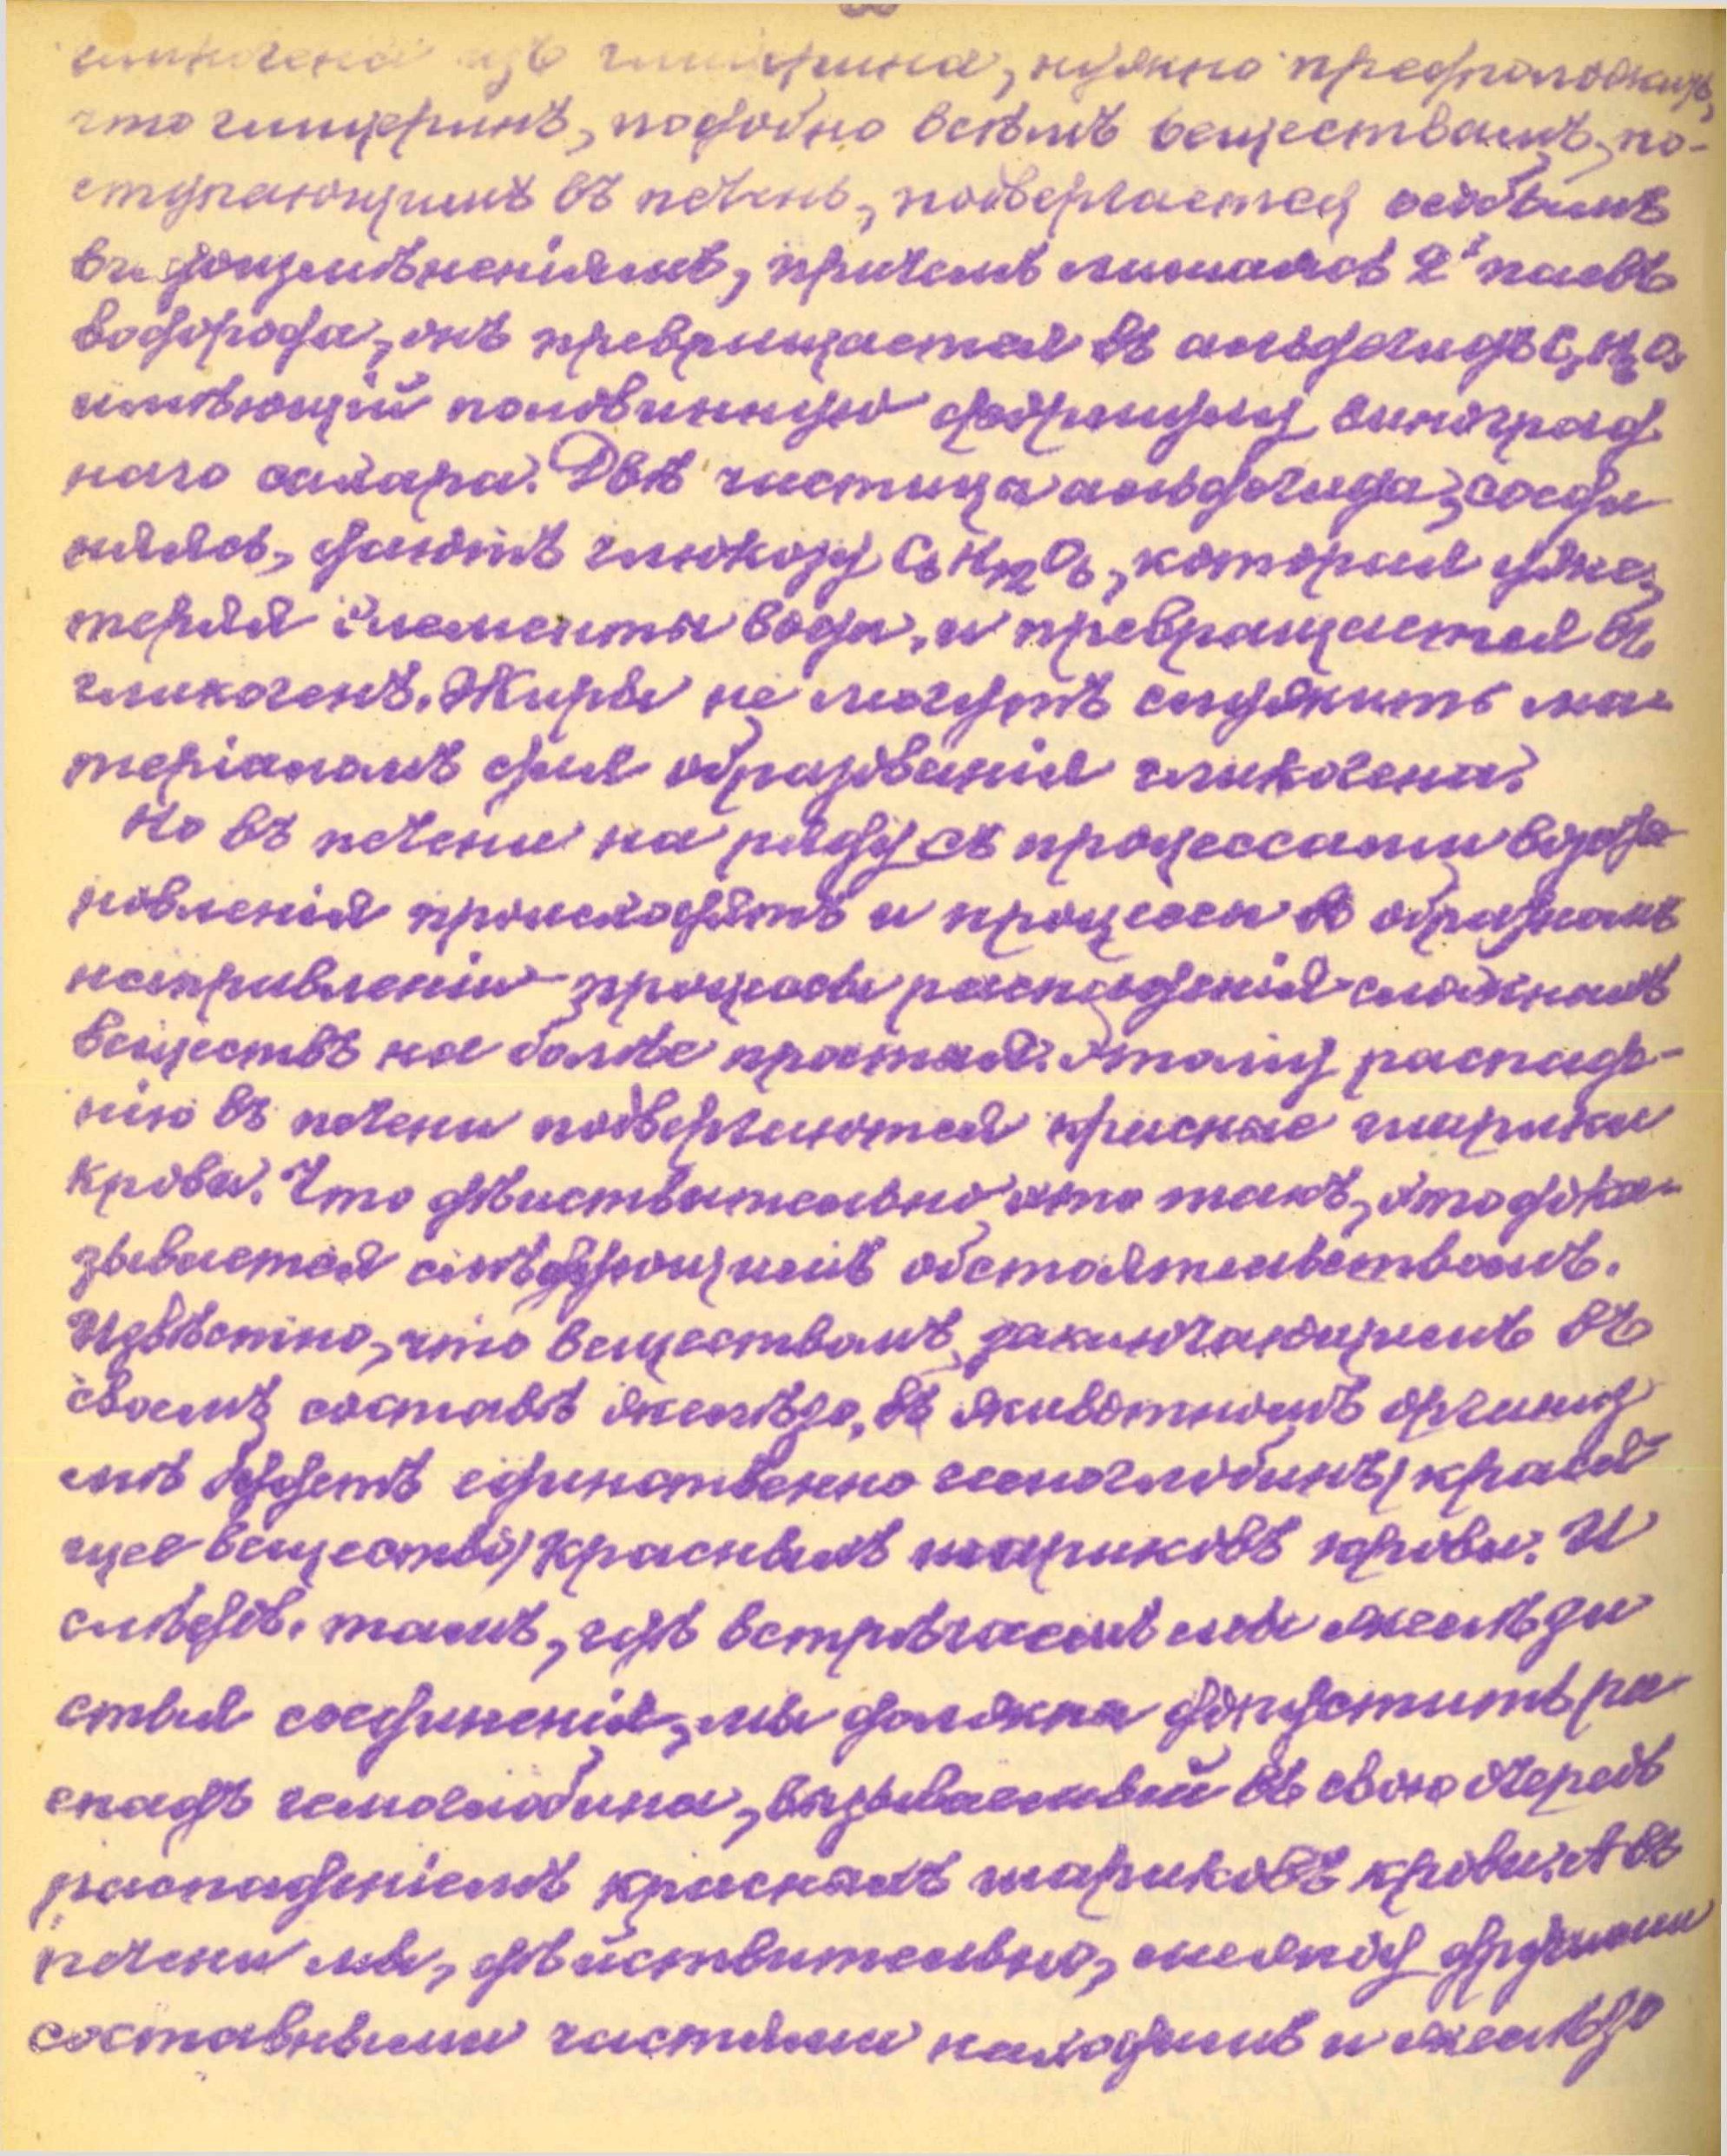 гликогена изъ глицерина, нужно предположить,
что глицеринъ, подобно всѣмъ веществамъ, по-
ступающимъ въ печень, подвергается особымъ
видоизмѣненіямъ, причемъ лишаясь 2ˣ паевъ
водорода, онъ превращается въ альдегидъ C₃H₆O₃
имѣющій половинную формулу виноград
наго сахара. Двѣ частицы альдегида, соеди
няясь, даютъ глюкозу C₆H₁₂O₆, которая уже,
теряя элементы воды, и превращается въ
гликогенъ. Жиры не могутъ служить ма-
теріаломъ для образованія гликогена.
Но въ печени на ряду съ процессами возста
новленія происходятъ и процессы въ обратномъ
направленіи - процессы распаденія сложныхъ
веществъ на болѣе простыя. Этому распаде-
нію въ печени подвергаются красные шарики
крови. Что дѣиствительно это такъ, это дока-
зывается слѣдующимъ обстоятельствомъ.
Извѣстно, что веществомъ, заключающимъ въ
своемъ составѣ желѣзо, въ животномъ организ
мѣ будетъ единственно гемоглобинъ (крася
щее вещество) красныхъ шариковъ крови. И
слѣдов. тамъ, гдѣ встрѣчаемъ мы желѣзи
стыя соединенія, мы должны допустить ра
спадъ гемоглобина, вызываемый въ свою очередь
распаденіемъ красныхъ шариковъ крови. А въ
печени мы, дѣйствительно, между другими
составными частями находимъ и желѣзо